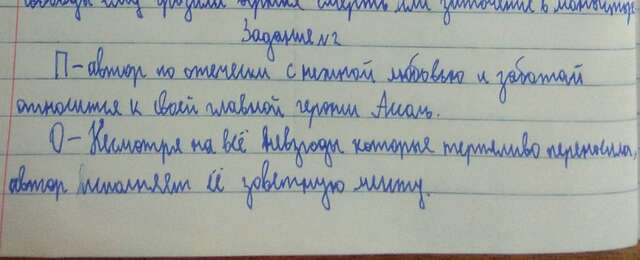 свободы ему грозили верная смерть или заточение в монастыре
Задание №2
П – автор по отечески с нежной любовью и заботай
относится к своей главной героини Ассоль.
О – Несмотря на всё невзгоды которые терпеливо переносила,
автор исполняет её зоветную мечту.